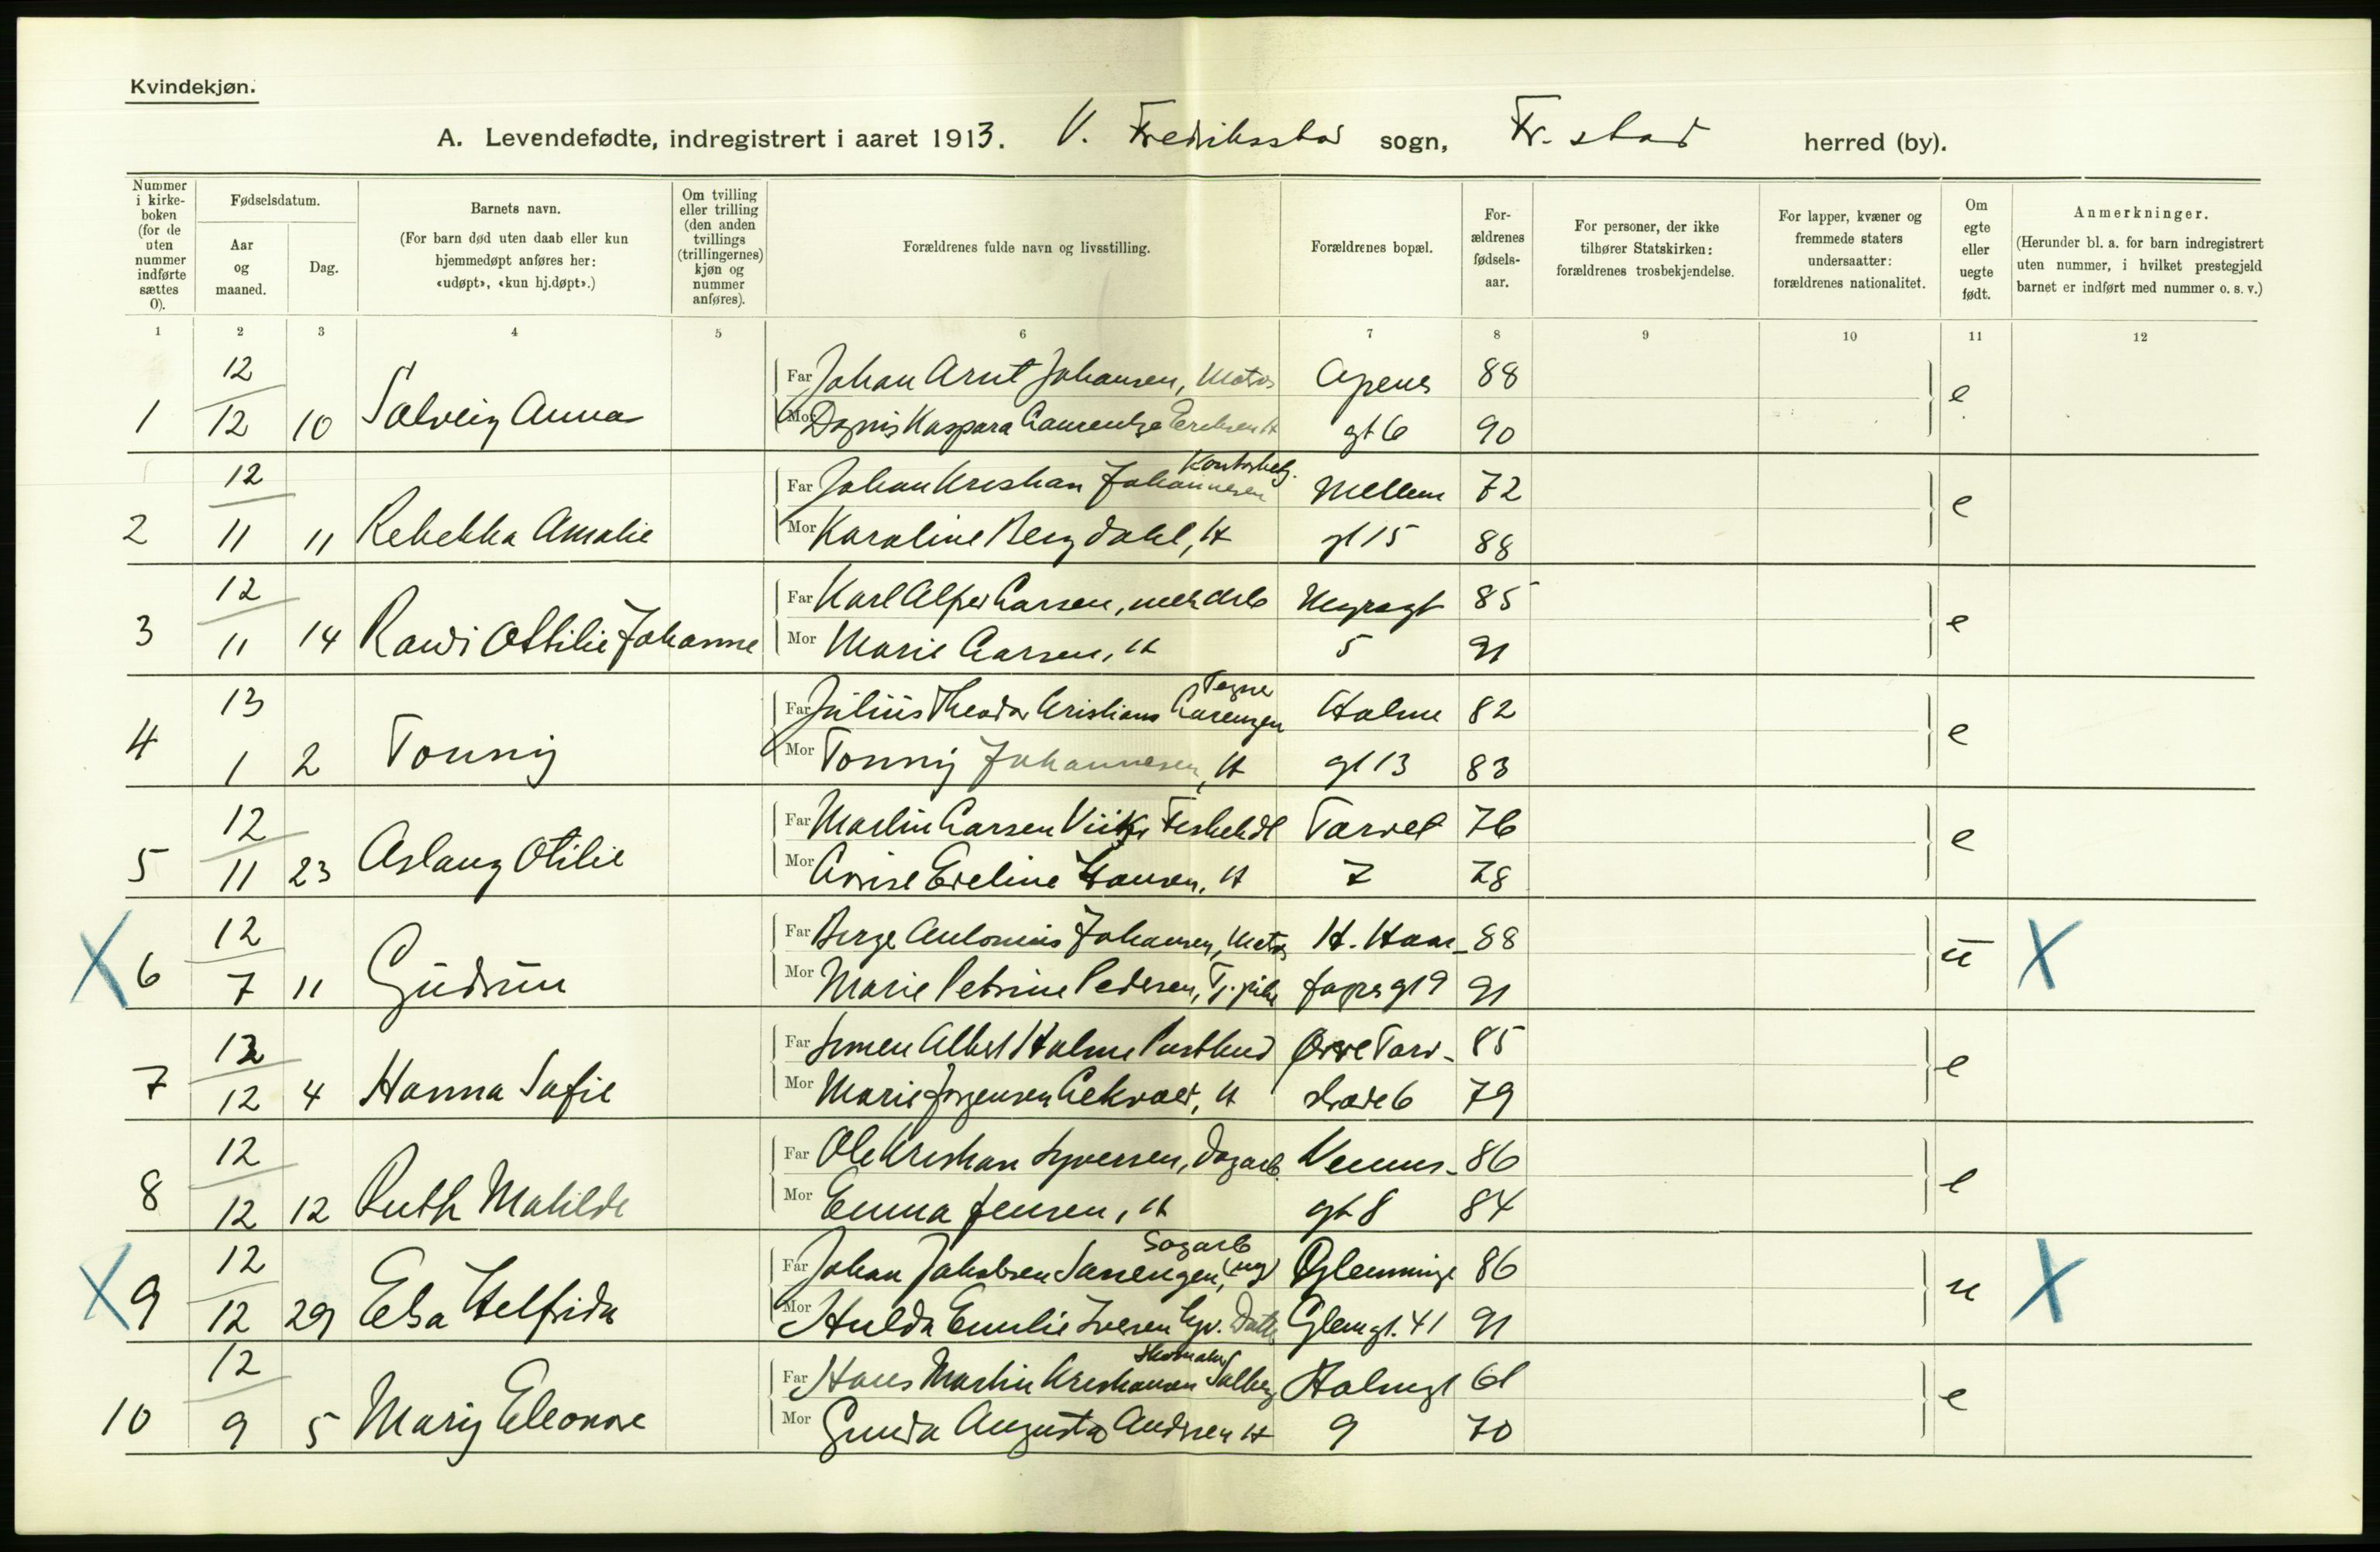 Kvindekjøn.
A. Levendefødte, indregistrert i aaret 1913. V. Fredriksstad sogn, Fr. stad herred (by).
Nummer i kirke-boken (for de uten nummer indførte sættes 0).
Fødselsdatum.
Aar og maaned.
Dag.
Barnets navn.
(For barn død uten daab eller kun hjemmedøpt anføres her: «udøpt», «kun hj.døpt».)
Om tvilling eller trilling (den anden tvillings (trillingernes) kjøn og nummer anføres).
Forældrenes fulde navn og livsstilling.
Forældrenes bopæl.
For-ældrenes fødsels-aar.
For personer, der ikke tilhører Statskirken: forældrenes trosbekjendelse.
For lapper, kvæner og fremmede staters undersaatter: forældrenes nationalitet.
Om egte eller uegte født.
Anmerkninger.
(Herunder bl. a. for barn indregistrert uten nummer, i hvilket prestegjeld barnet er indført med nummer o. s. v.)
1 2 3 4 5 6 7 8 9 10 11 12
12 Far Johan Arnt Johansen, Matros Apenes 88
1 12 10 Solveig Anna Mor Kaspara Laurentze H gt 6 90 e
12 Far Johan Kristian Johannesen Kontorbetj. Mellem 72
2 11 11 Rebekka Amalie Mor Karoline Bergdahl, H gt 15 88 e
12 Far Karl Alfred Larsen, mek arb 85
3 11 14 Randi Ottilie Johanne Mor Marie Larsen, H 5 91 e
13 Far Julius Theodor Kristians Laurengen Holme 82
4 1 2 Tonny Mor Tonny Johannesen, H gt 13 83 e
12 Far Martin Larsen Torvet 76
5 11 23 Aslaug Otilie Mor Eveline Hansen, H 7 78 e
12 Far Birger Antonius Johansen, Matros H. Haar- 88
X 6 7 11 Gudrun Mor Marie Petrine Pedersen, Tj. pike fagres gt 9 91 u X
12 Far Simen Albert Holme Postbud Øvre Torv- 85
7 12 4 Hanna Sofie Mor Marie Jørgensen, H stræde 6 79 e
12 Far Ole Kristian Syversen, Dagarb. Venus- 86
8 12 12 Ruth Matilde Mor Emma Jensen, H gt 8 84 e
12 Far Johan Jakobsen Sagarb (ug) Glemminge 86
X 9 12 29 Elsa Helfrida Mor Hulda Emilie Iversen Glemgt. 41 91 u X
12 Far Hans Martin Kristiansen Solberg Skomaker Holmegt 61
10 9 5 Mary Eleonore Mor Gunda Augusta Andersen H 9 70 e